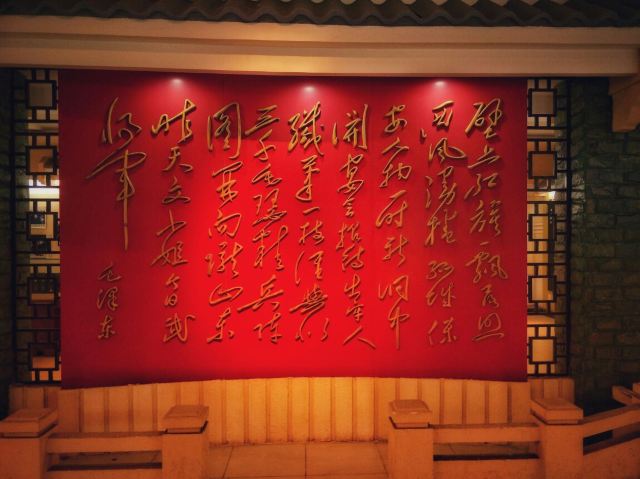 壁上红旗飄落照
西风漫捲孤城保
安人物一时新洞中
開宴会招待出牢人
纖筆一枝谁與似
三千毛瑟精兵陣
圖開向陇山东
昨天文小姐今日武
将军
毛泽东